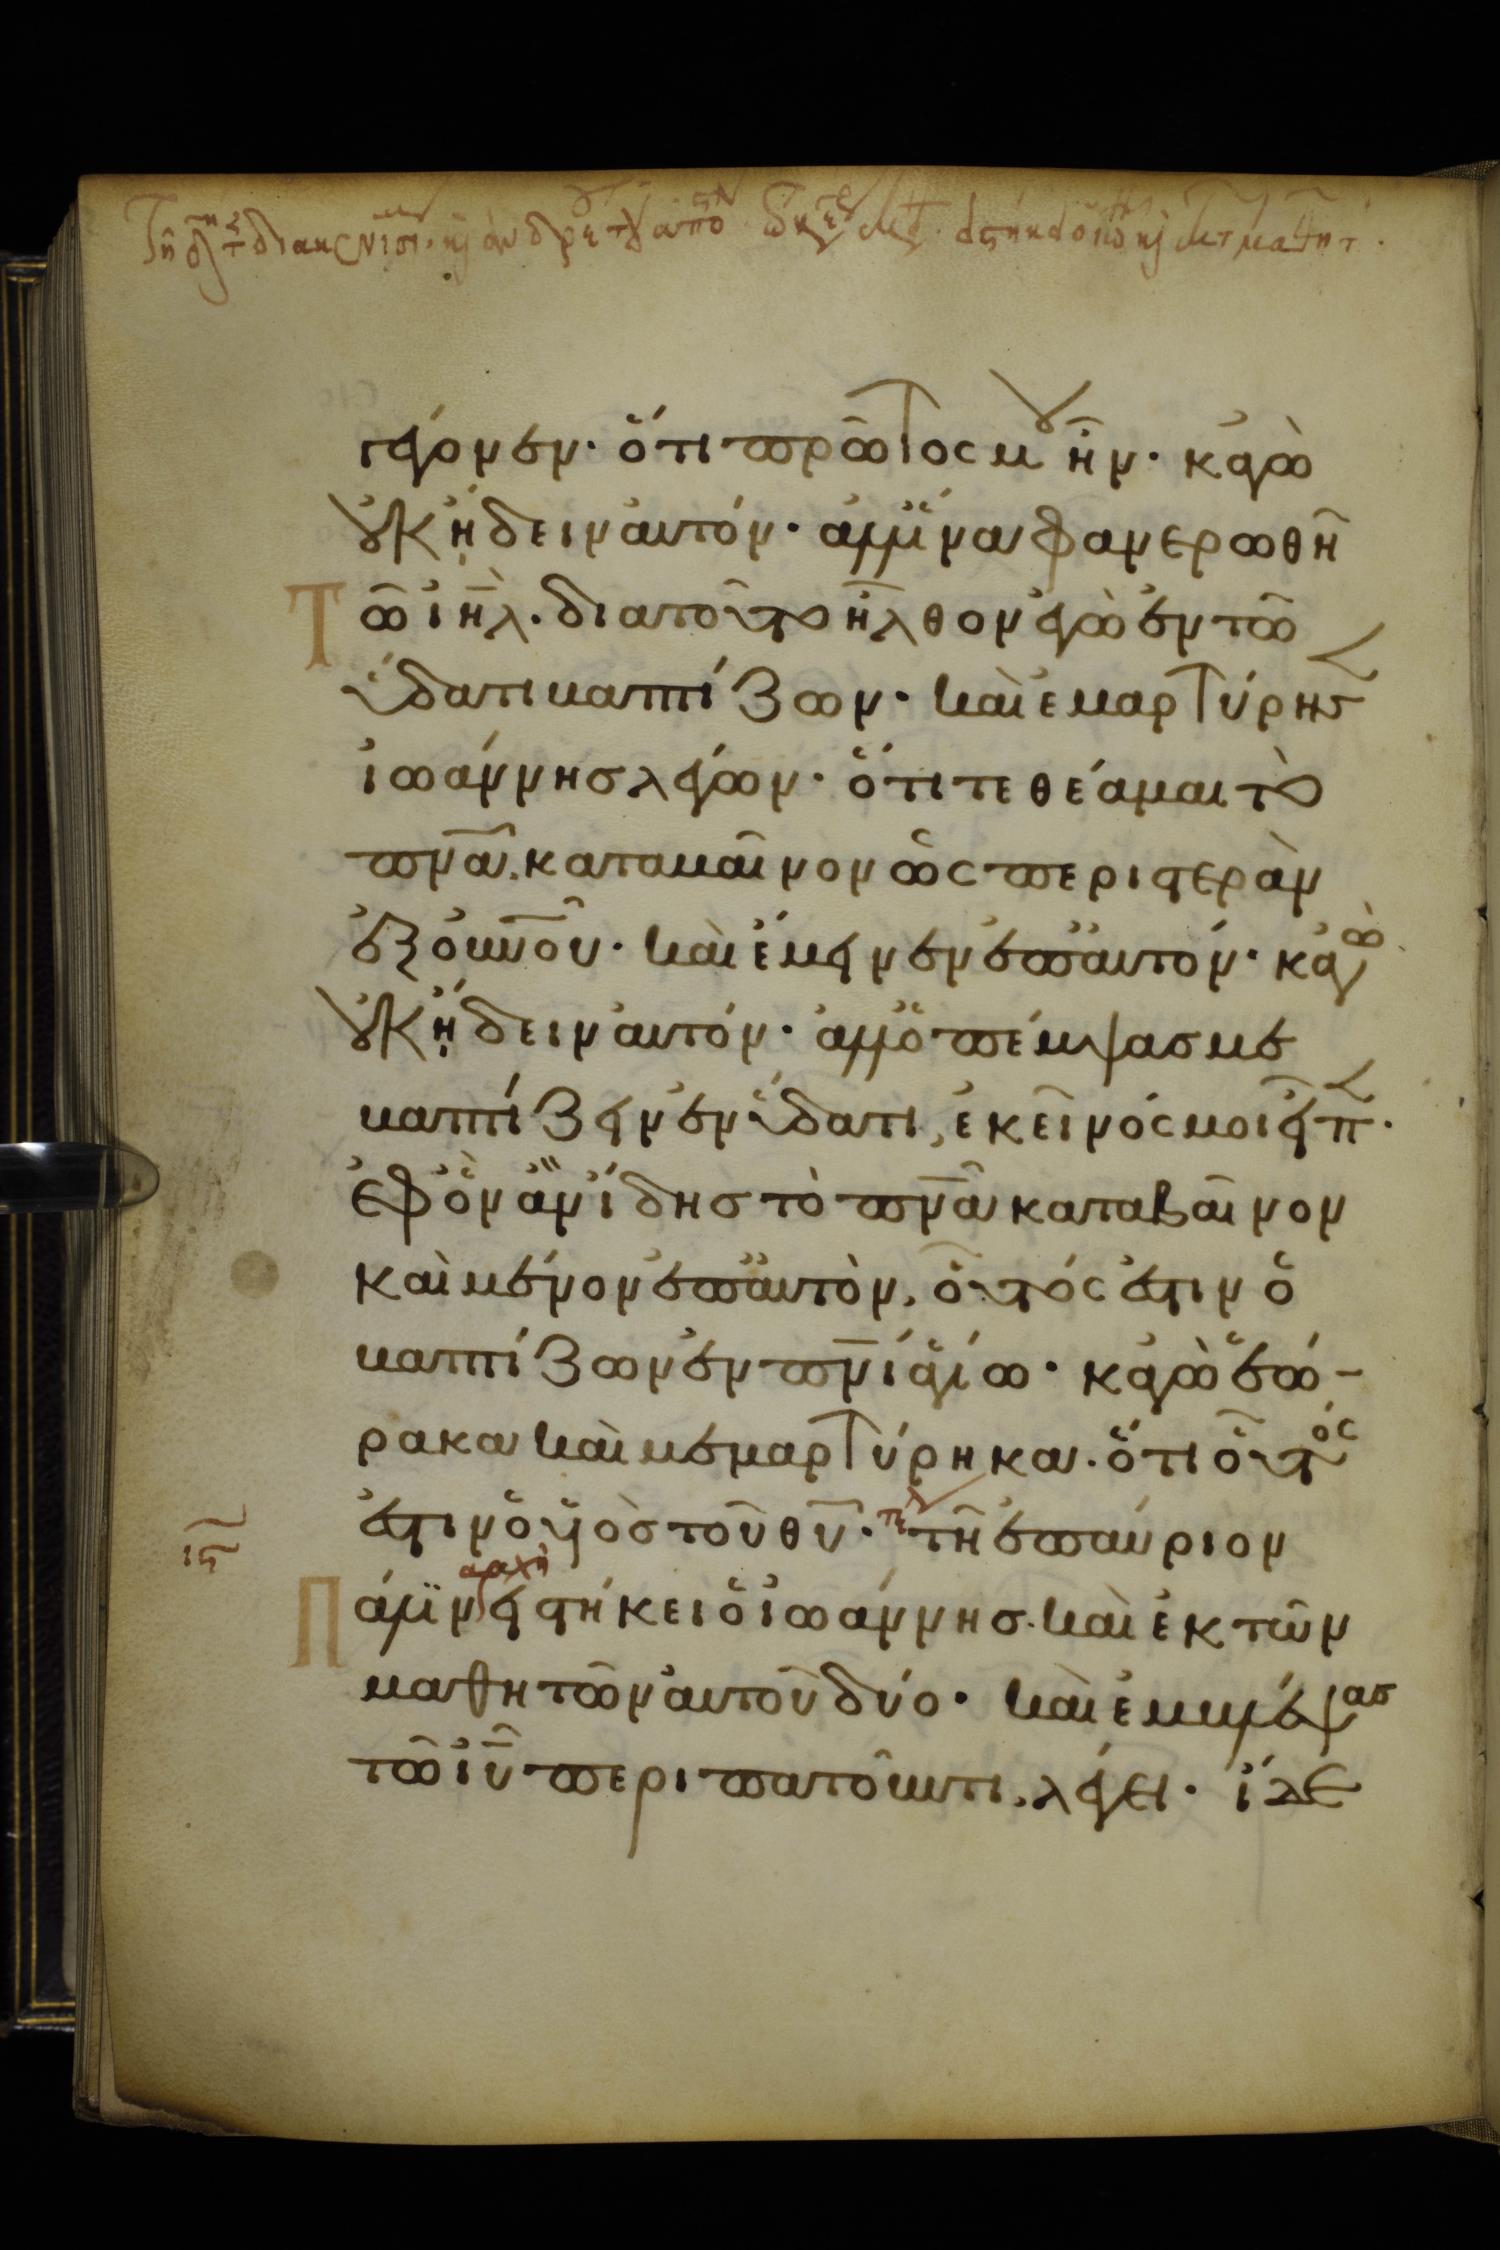 γέγονεν· ὅτι πρῶτός μου ἦν· κἀγὼ
οὐκ ᾔδειν αὐτόν· ἀλλ' ἵνα φανερωθῆ
τῶ ιηλ. διατοῦτο ἦλθον ἐγὼ ἐν τῶ
ὕδατι βαπτίζων· καὶ ἐμαρτύρησε
ἰωάννησ λέγων· ὅτι τεθέαμαι το
πνα. καταβαῖνον ὡς περιστερὰν
ἐξ οὐνου· καὶ ἔμεινεν ἐπ' αὐτόν· κἀγὼ
οὐκ ᾔδειν αὐτόν· ἀλλ' ὁ πέμψασ με
βαπτίζειν ἐν ὕδατι, ἐκεῖνός μοι εἶπεν·
ἐφ' ὃν ἂν ἴδησ τὸ πνα καταβαῖνον
καὶ μένον ἐπ' αὐτὸν, οὗτός ἐστιν ὁ
βαπτίζων ἐν πνι ἁγίω· κἀγὼ ἑώ-
ρακα καὶ μεμαρτύρηκα. ὅτι οὗτός
ἐστιν ὁ υἱὸσ τοῦ θυ· τε τῆ ἐπαύριον
ις
αρχὴ
πάλιν εἱστήκει ὁ ἰωάννησ. καὶ ἐκ τῶν
μαθητῶν αὐτοῦ δύο· καὶ ἐμβλέψασ
τῶ ιυ περιπατοῦντι, λέγει· ἴδε